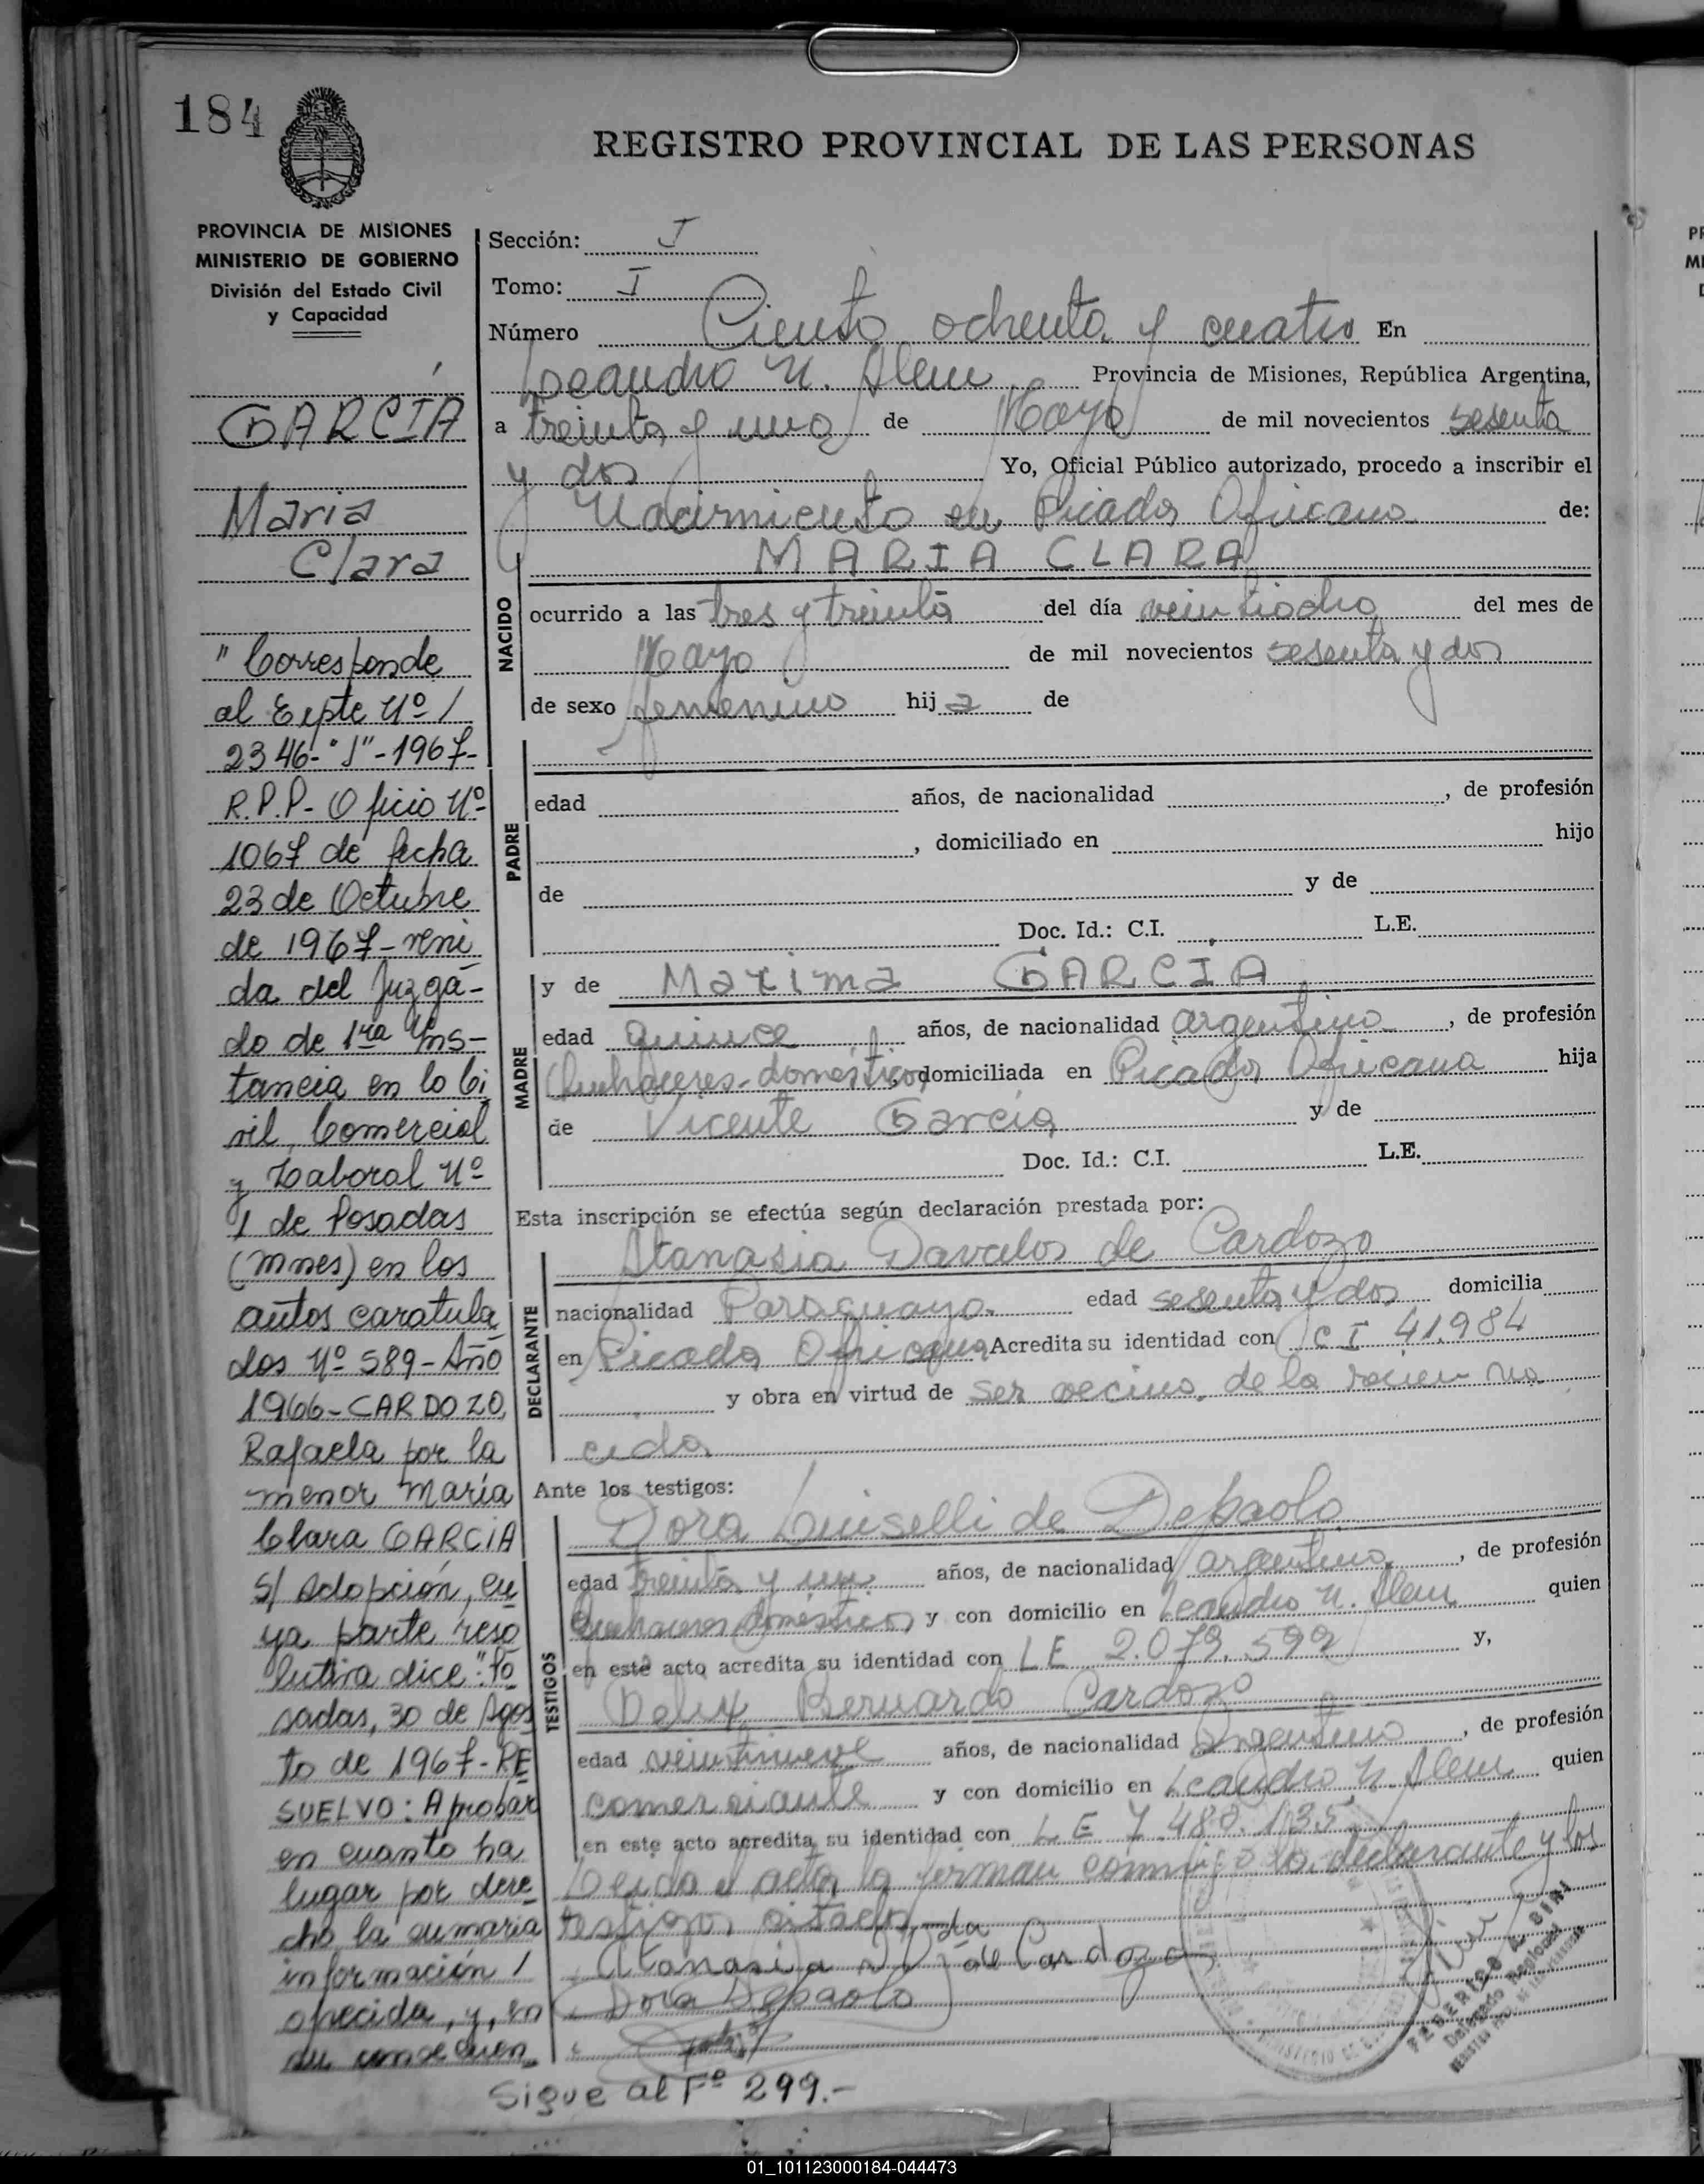 184
REGISTRO PROVINCIAL DE LAS PERSONAS
PROVINCIA DE MISIONES
MINISTERIO DE GOBIERNO
División del Estado Civil
y Capacidad
GARCIA
Maria
Clara
"Corresponde
al Expte Nº /
2346-"J"-1967-
R.P.P- Oficio Nº
1067 de fecha
23 de Octubre
de 1967- veni
da del Juzga-
do de 1ra Ins-
tancia en lo Ci
vil, Comercial
y Laboral Nº
1 de Posadas
(Mnes) en los
autos caratula
dos Nº 589-Año
1966-CARDOZO,
Rafaela por la
menor María
Clara GARCIA
S/ Adopción, cu
ya parte reso
lutiva dice: "Po
sadas, 30 de Agos
to de 1967-RE
SUELVO: Aprobar
en cuanto ha
lugar por dere
cho la sumaria
información /
ofrecida, y, en
su consecuen
Sección: I
Tomo: I
Número Ciento ochenta y cuatro En
Leandro N. Alem Provincia de Misiones, República Argentina,
a treinta y uno de Mayo de mil novecientos sesenta
y dos Yo, Oficial Público autorizado, procedo a inscribir el
Nacimiento en Picada Africana de:
MARIA CLARA
NACIDO
ocurrido a las tres y treinta del día veintiocho del mes de
Mayo de mil novecientos sesenta y dos
de sexo femenino hij a de
PADRE
edad años, de nacionalidad , de profesión
, domiciliado en hijo
de y de
Doc. Id.: C.I. L.E.
MADRE
y de Maxima GARCIA
edad quince años, de nacionalidad argentina , de profesión
Quehaceres-domésticos, domiciliada en Picada Africana hija
de Vicente García y de
Doc. Id.: C.I. L.E.
Esta inscripción se efectúa según declaración prestada por:
DECLARANTE
Atanasia Davalos de Cardozo
nacionalidad Paraguaya edad sesenta y dos domicilia
en Picada Africana Acredita su identidad con C I 41.984
y obra en virtud de ser vecina de la recien na
cida
Ante los testigos:
TESTIGOS
Dora Luiselli de Depaolo
edad treinta y un años, de nacionalidad argentina , de profesión
Quehaceres domésticos y con domicilio en Leandro N. Alem quien
en este acto acredita su identidad con LE 2.079.599 y,
Bernardo Cardozo
edad veintinueve años, de nacionalidad Argentino , de profesión
comerciante y con domicilio en Leandro N. Alem quien
en este acto acredita su identidad con L E 7.480.135
Leida el acta la firman conmigo la declarante y los
testigos citados
Atanasia de Cardozo
Dora Depaolo
FEDERICO
Delegado Regional
Sigue al Fº 299.-
01_101123000184-044473